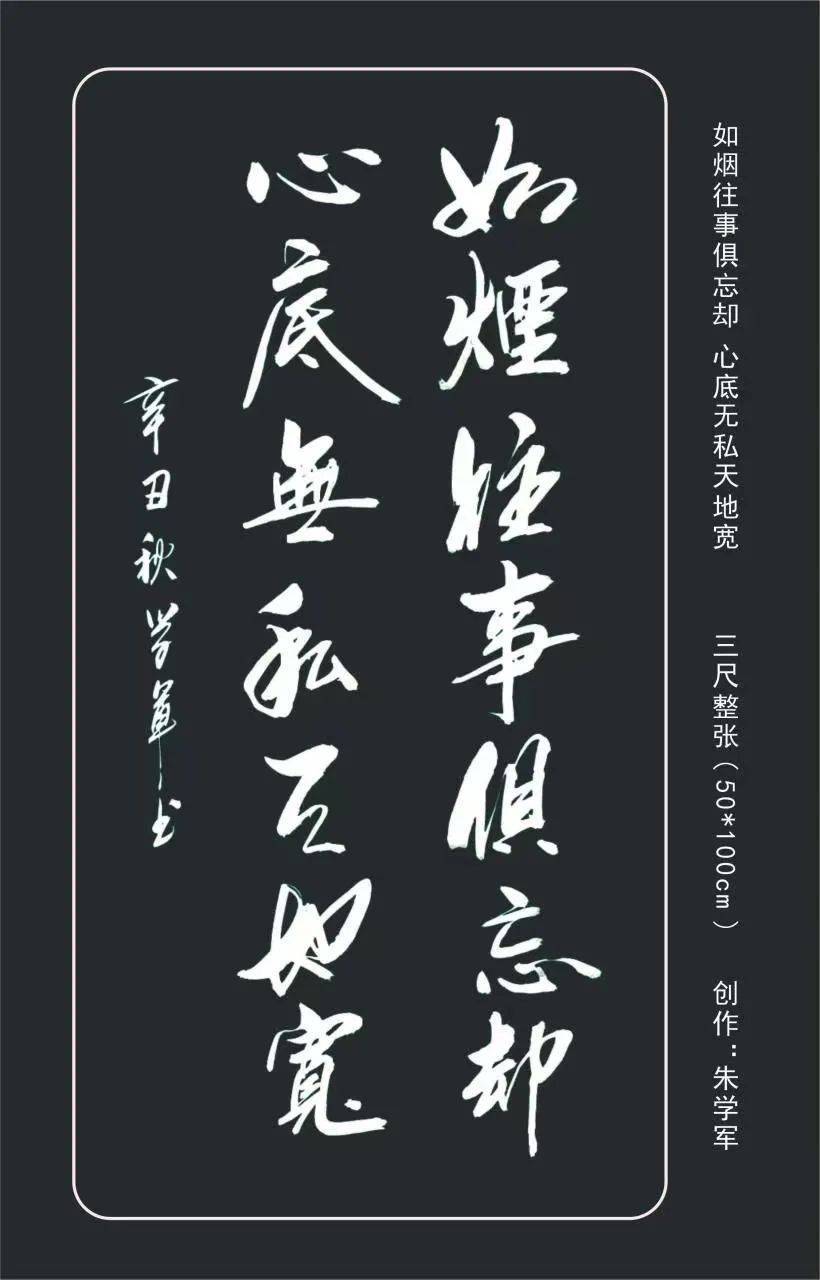 如烟往事俱忘却 心底无私天地宽 三尺整张(50*100cm) 创作:朱学军
如煙往事俱忘却
心底無私天地寬
辛丑秋学軍书